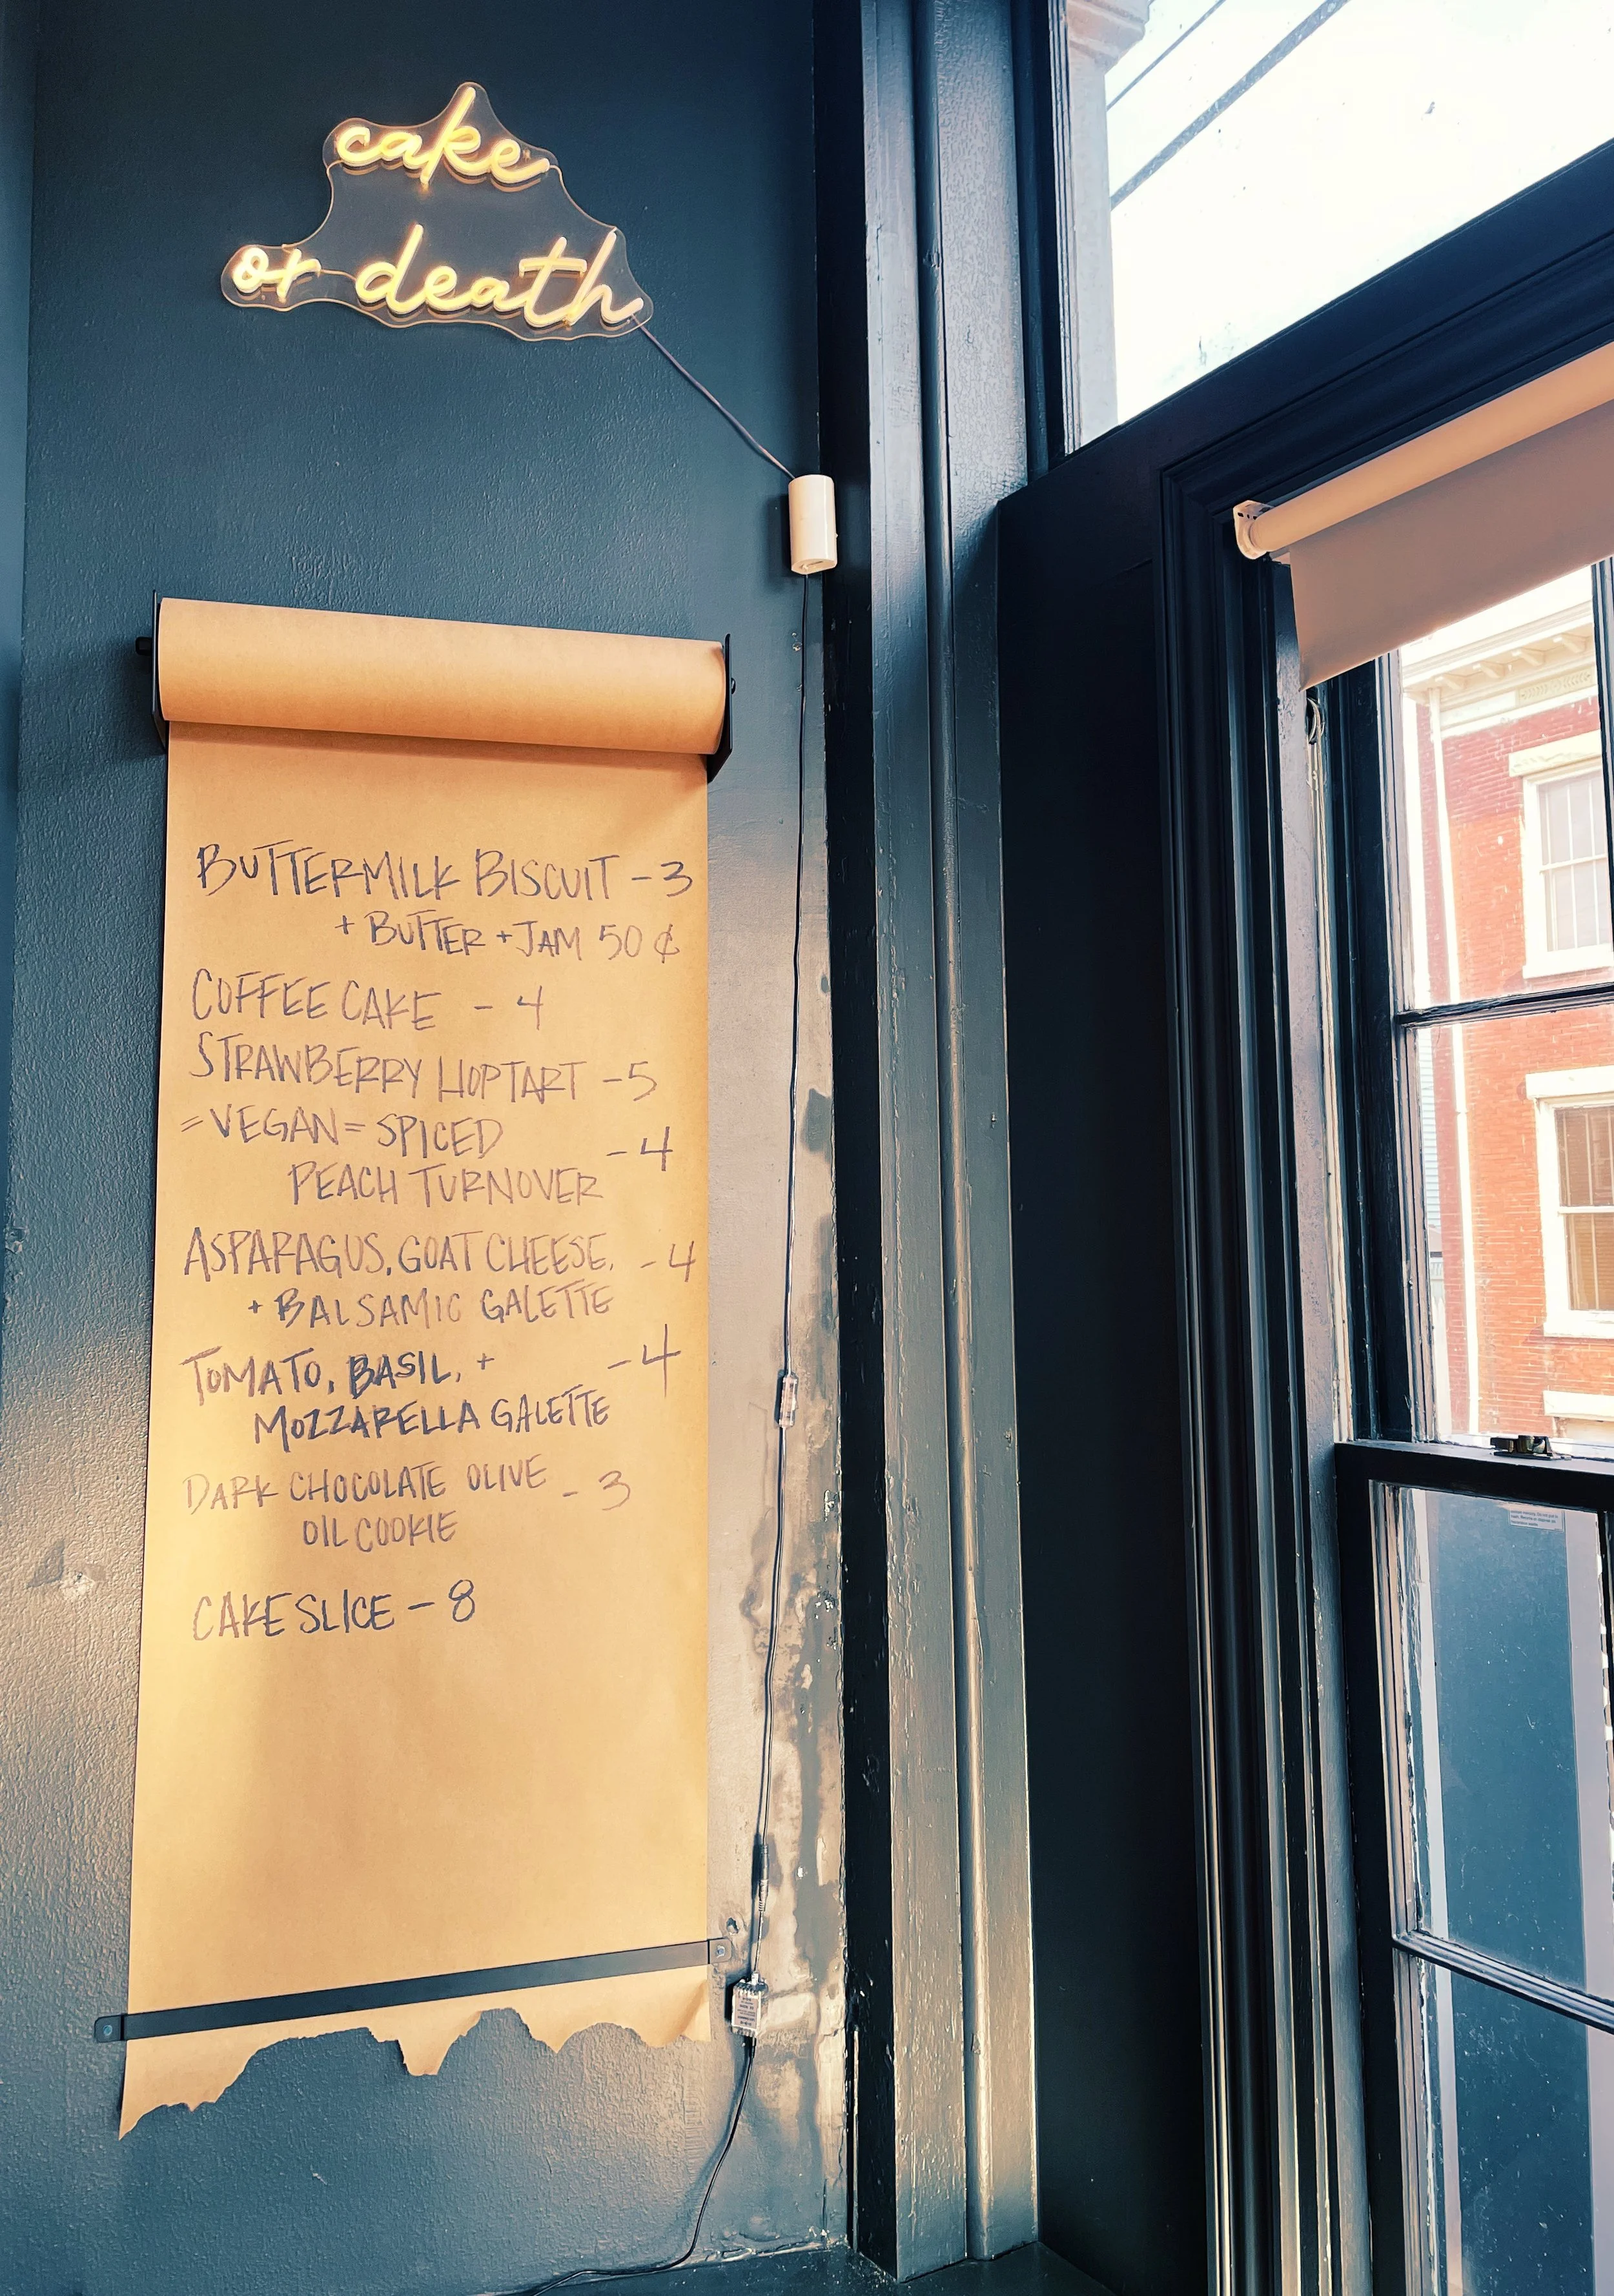 cake
or death
BUTTERMILK BISCUIT - 3
+ BUTTER + JAM 50 ¢
COFFEE CAKE - 4
STRAWBERRY HOPTART - 5
= VEGAN = SPICED
PEACH TURNOVER - 4
ASPARAGUS, GOAT CHEESE, - 4
+ BALSAMIC GALETTE
TOMATO, BASIL, + - 4
MOZZARELLA GALETTE
DARK CHOCOLATE OLIVE - 3
OIL COOKIE
CAKE SLICE - 8